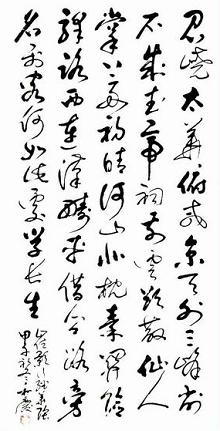 岧嶢太華俯咸京天外三峰削
不成武帝祠前雲欲散仙人
掌上雨初晴河山北枕秦關險
驛路西連漢畤平借問路旁
名利客何如此處學長生
崔顥行經華陰